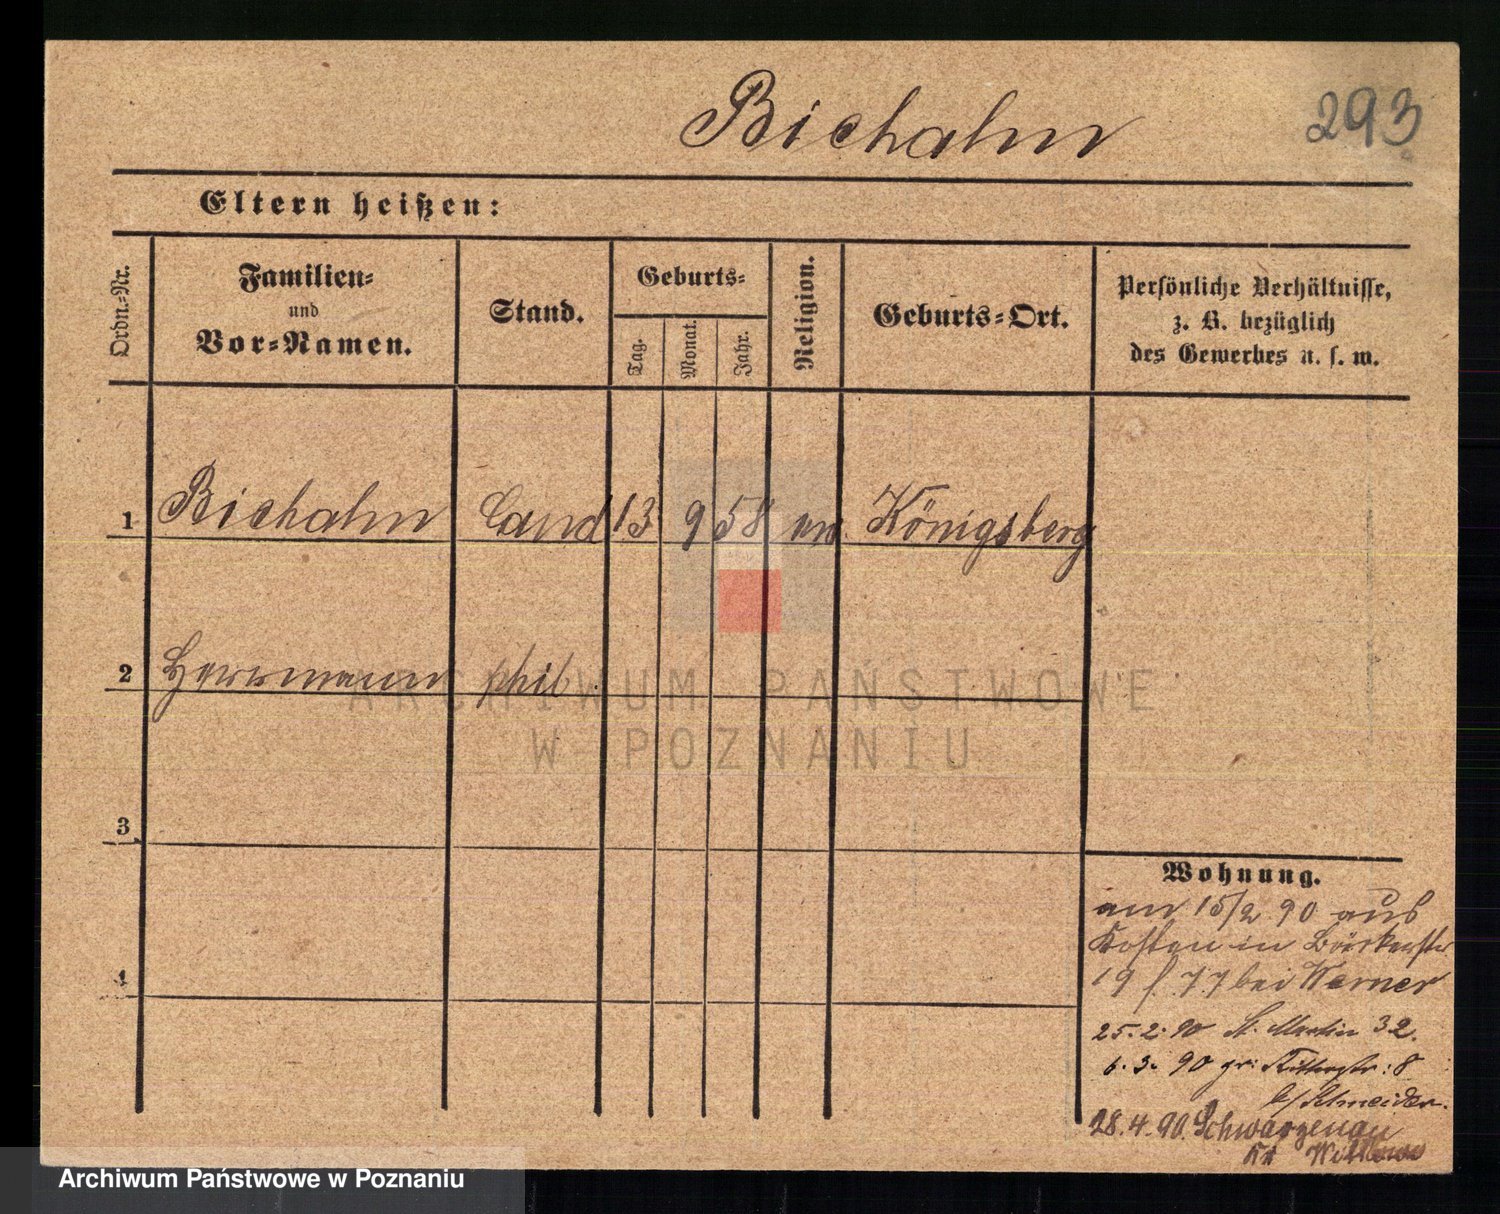 Bichahn
293
Eltern heißen:
Ordn.=Nr.
Familien=
und
Vor=Namen.
Stand.
Geburts=
Tag.
Monat.
Jahr.
Religion.
Geburts=Ort.
Persönliche Verhältnisse,
z. B. bezüglich
des Gewerbes u. s. w.
1 Bichahn Cand 13 9 58 Königsberg
2 Herrmann phil.
3
4
Wohnung.
am 15/2 90 aus
Kosten in Bäckerstr
19 f. 77 bei Werner
25.2.90 St. Martin 32.
6.3.90 gr: Ritterstr: 8
b/ Schneider.
28.4.90. Schwarzenau
Kr
ARCHIWUM PAŃSTWOWE
W POZNANIU
Archiwum Państwowe w Poznaniu